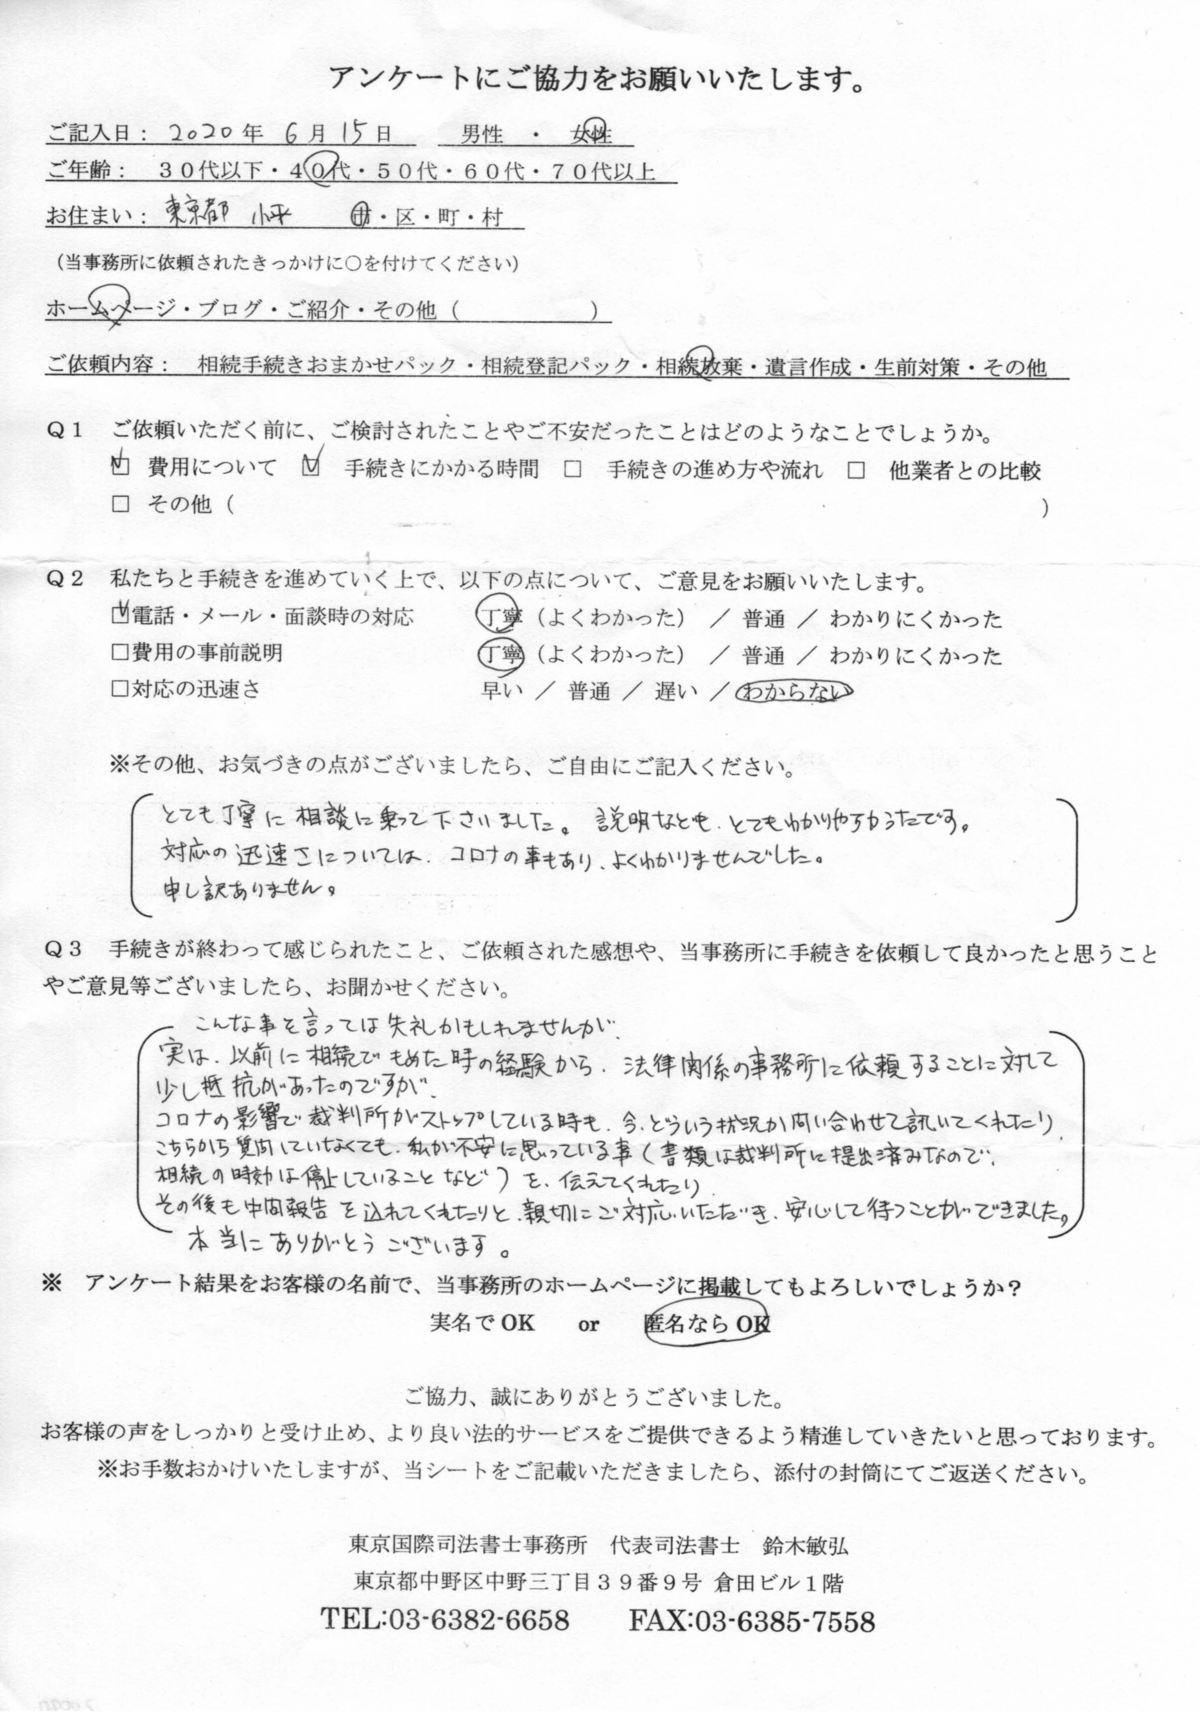 アンケートにご協力をお願いいたします。
ご記入日： 2020年 6月 15日　男性　・　女性
ご年齢：　３０代以下・４０代・５０代・６０代・７０代以上
お住まい： 東京都 小平　市・区・町・村
（当事務所に依頼されたきっかけに○を付けてください）
ホームページ・ブログ・ご紹介・その他（　　　　　　）
ご依頼内容：　相続手続きおまかせパック・相続登記パック・相続放棄・遺言作成・生前対策・その他
Ｑ１　ご依頼いただく前に、ご検討されたことやご不安だったことはどのようなことでしょうか。
☑ 費用について　☑ 手続きにかかる時間　□ 手続きの進め方や流れ　□ 他業者との比較
□ その他（　　　　　　　　　　　　　　　　　　）
Ｑ２　私たちと手続きを進めていく上で、以下の点について、ご意見をお願いいたします。
☑電話・メール・面談時の対応　丁寧（よくわかった）／ 普通 ／ わかりにくかった
□費用の事前説明　丁寧（よくわかった）／ 普通 ／ わかりにくかった
□対応の迅速さ　早い ／ 普通 ／ 遅い ／ わからない
※その他、お気づきの点がございましたら、ご自由にご記入ください。
とても丁寧に相談に乗って下さいました。説明なども、とてもわかりやすかったです。
対応の迅速さについては、コロナの事もあり、よくわかりませんでした。
申し訳ありません。
Ｑ３　手続きが終わって感じられたこと、ご依頼された感想や、当事務所に手続きを依頼して良かったと思うこと
やご意見等ございましたら、お聞かせください。
こんな事を言っては失礼かもしれませんが、
実は、以前に相続でもめた時の経験から、法律関係の事務所に依頼することに対して
少し抵抗があったのですが、
コロナの影響で裁判所がストップしている時も、今、どういう状況か問い合わせて訊いてくれたり、
こちらから質問していなくても、私が不安に思っている事（書類は裁判所に提出済みなので、
相続の時効は停止していることなど）を、伝えてくれたり
その後も中間報告を込れてくれたりと、親切にご対応いただき、安心して待つことができました。
本当にありがとうございます。
※　アンケート結果をお客様の名前で、当事務所のホームページに掲載してもよろしいでしょうか？
実名でOK　or　匿名ならOK
ご協力、誠にありがとうございました。
お客様の声をしっかりと受け止め、より良い法的サービスをご提供できるよう精進していきたいと思っております。
※お手数おかけいたしますが、当シートをご記載いただきましたら、添付の封筒にてご返送ください。
東京国際司法書士事務所　代表司法書士　鈴木敏弘
東京都中野区中野三丁目３９番９号 倉田ビル１階
TEL:03-6382-6658　FAX:03-6385-7558